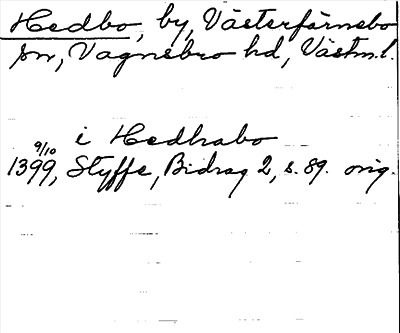 Hedbo, by, Västerfärnebo
sn, Vagnsbro hd, Västm.l.
i Hedhabo
9/10
1399, Styffe, Bidrag 2, s. 89. orig.